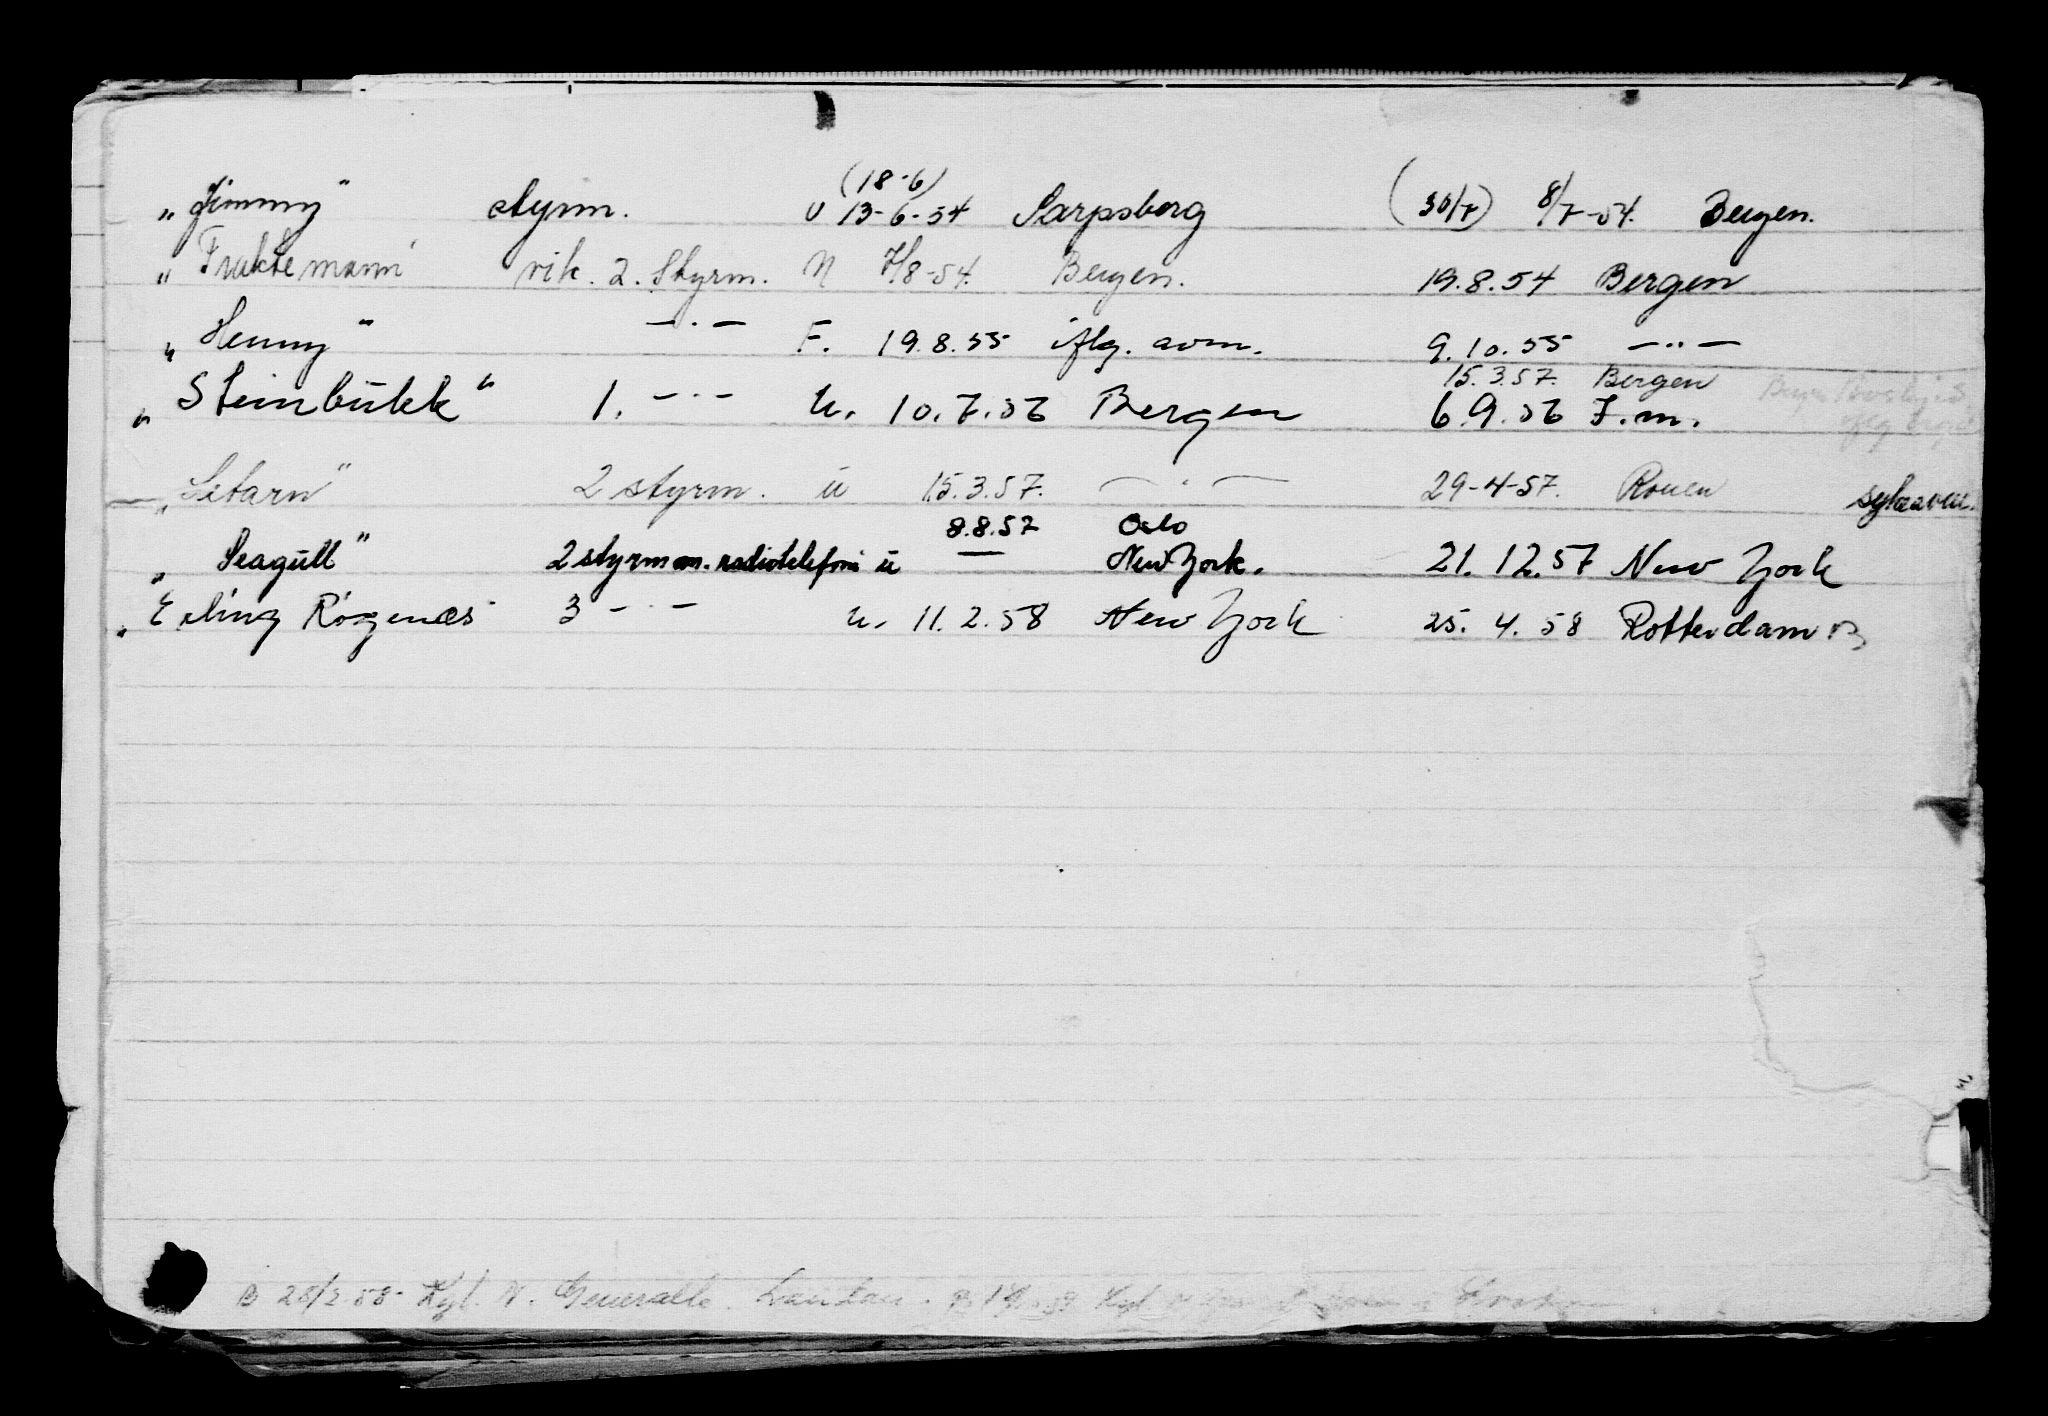 (18-6)
„Jimmy" styrm. U 13-6-54 Sarpsborg (30/7) 8/7-54. Bergen.
„Fruktemann" vik. 2. Styrm. N 7/8-54. Bergen. 19.8.54 Bergen
„Henny" —·— F. 19.8.55 iflg. avm. 9.10.55 —··—
15.3.57. Bergen
„Steinbukk" 1. —·— u. 10.7.56 Bergen 6.9.56 F.m.
„ " 2 styrm. u 15.3.57. —·— 29-4-57. Rouen
8.8.57 Oslo
„Seagull" 2 styrm m. radiotelefoni u — New York. 21.12.57 New York
„Erling Rogenæs 3 —·— u. 11.2.58 New York 25.4.58 Rotterdam
B 28/2 58 Kgl. N. Generalk.